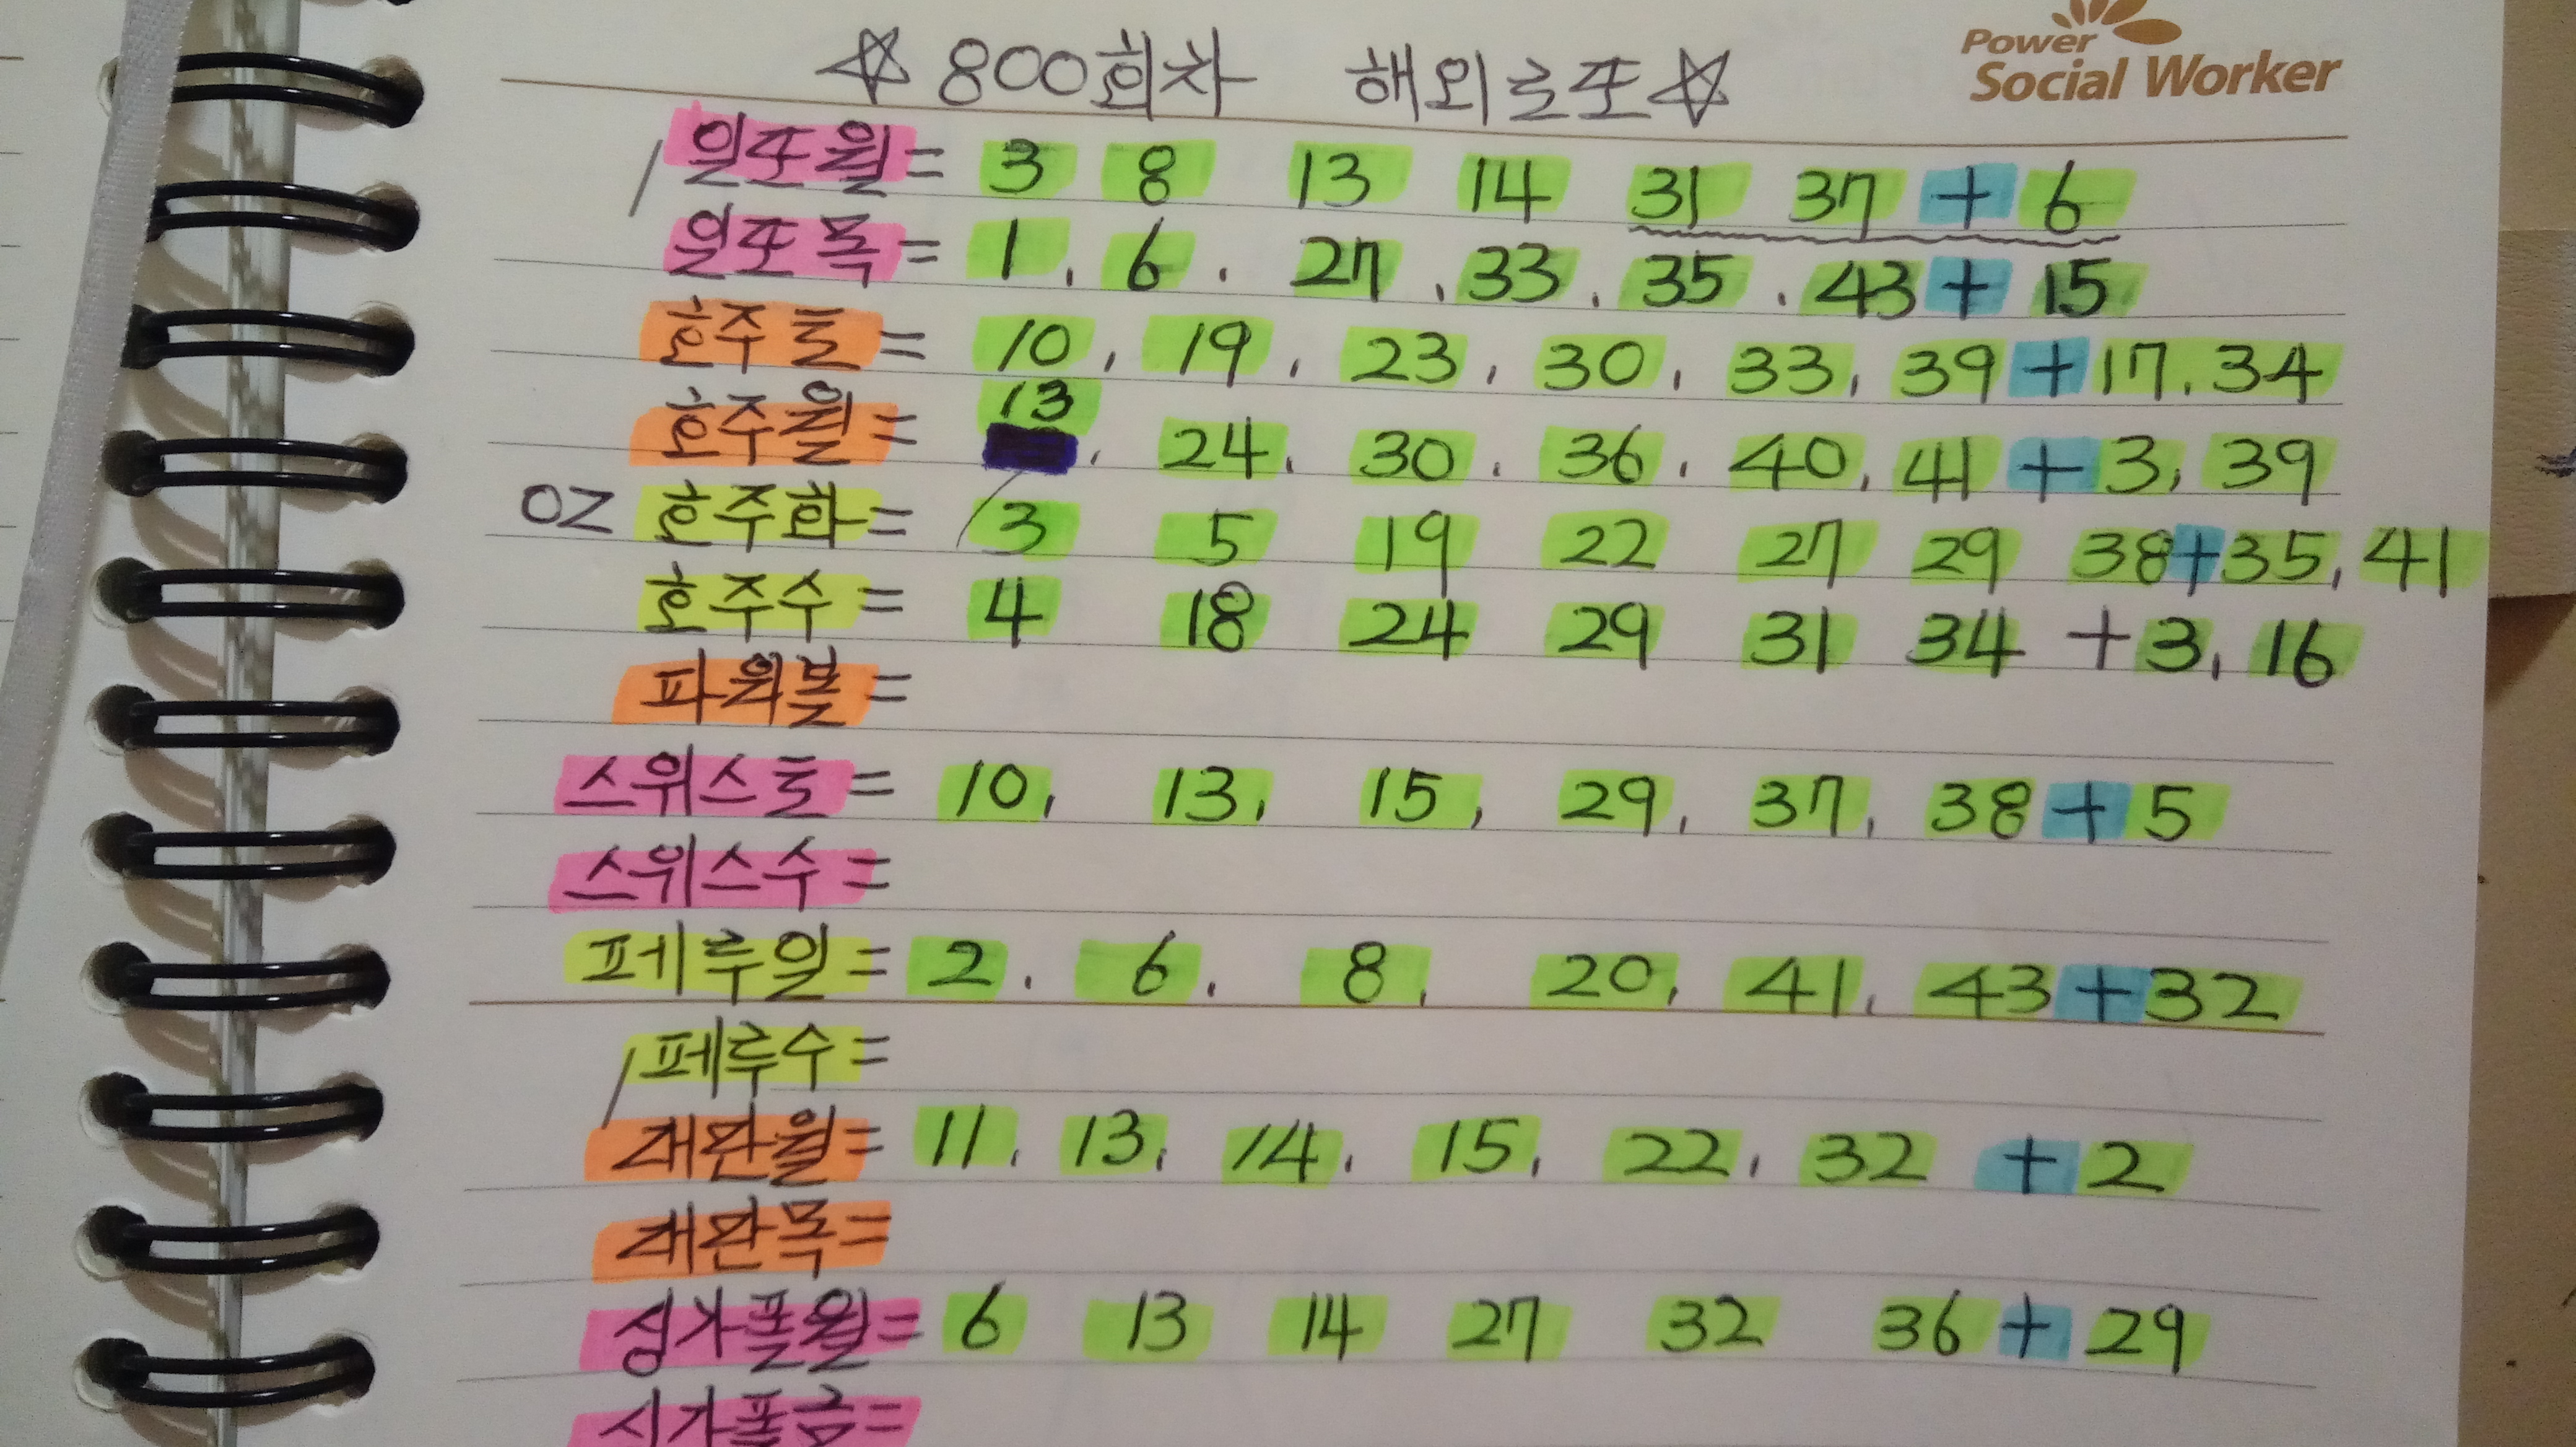 ☆ 800회차 해외로또 ☆
Power
Social Worker
일또월 = 3 8 13 14 31 37 + 6
일또목 = 1, 6, 27, 33, 35, 43 + 15
호주토 = 10, 19, 23, 30, 33, 39 + 17, 34
호주월 = 13, 24, 30, 36, 40, 41 + 3, 39
OZ 호주화 = 3 5 19 22 27 29 38 + 35, 41
호주수 = 4 18 24 29 31 34 + 3, 16
파워볼 =
스위스토 = 10, 13, 15, 29, 37, 38 + 5
스위스수 =
페루일 = 2, 6, 8, 20, 41, 43 + 32
페루수 =
대만월 = 11, 13, 14, 15, 22, 32 + 2
대만목 =
싱가폴월 = 6 13 14 27 32 36 + 29
싱가폴금 =